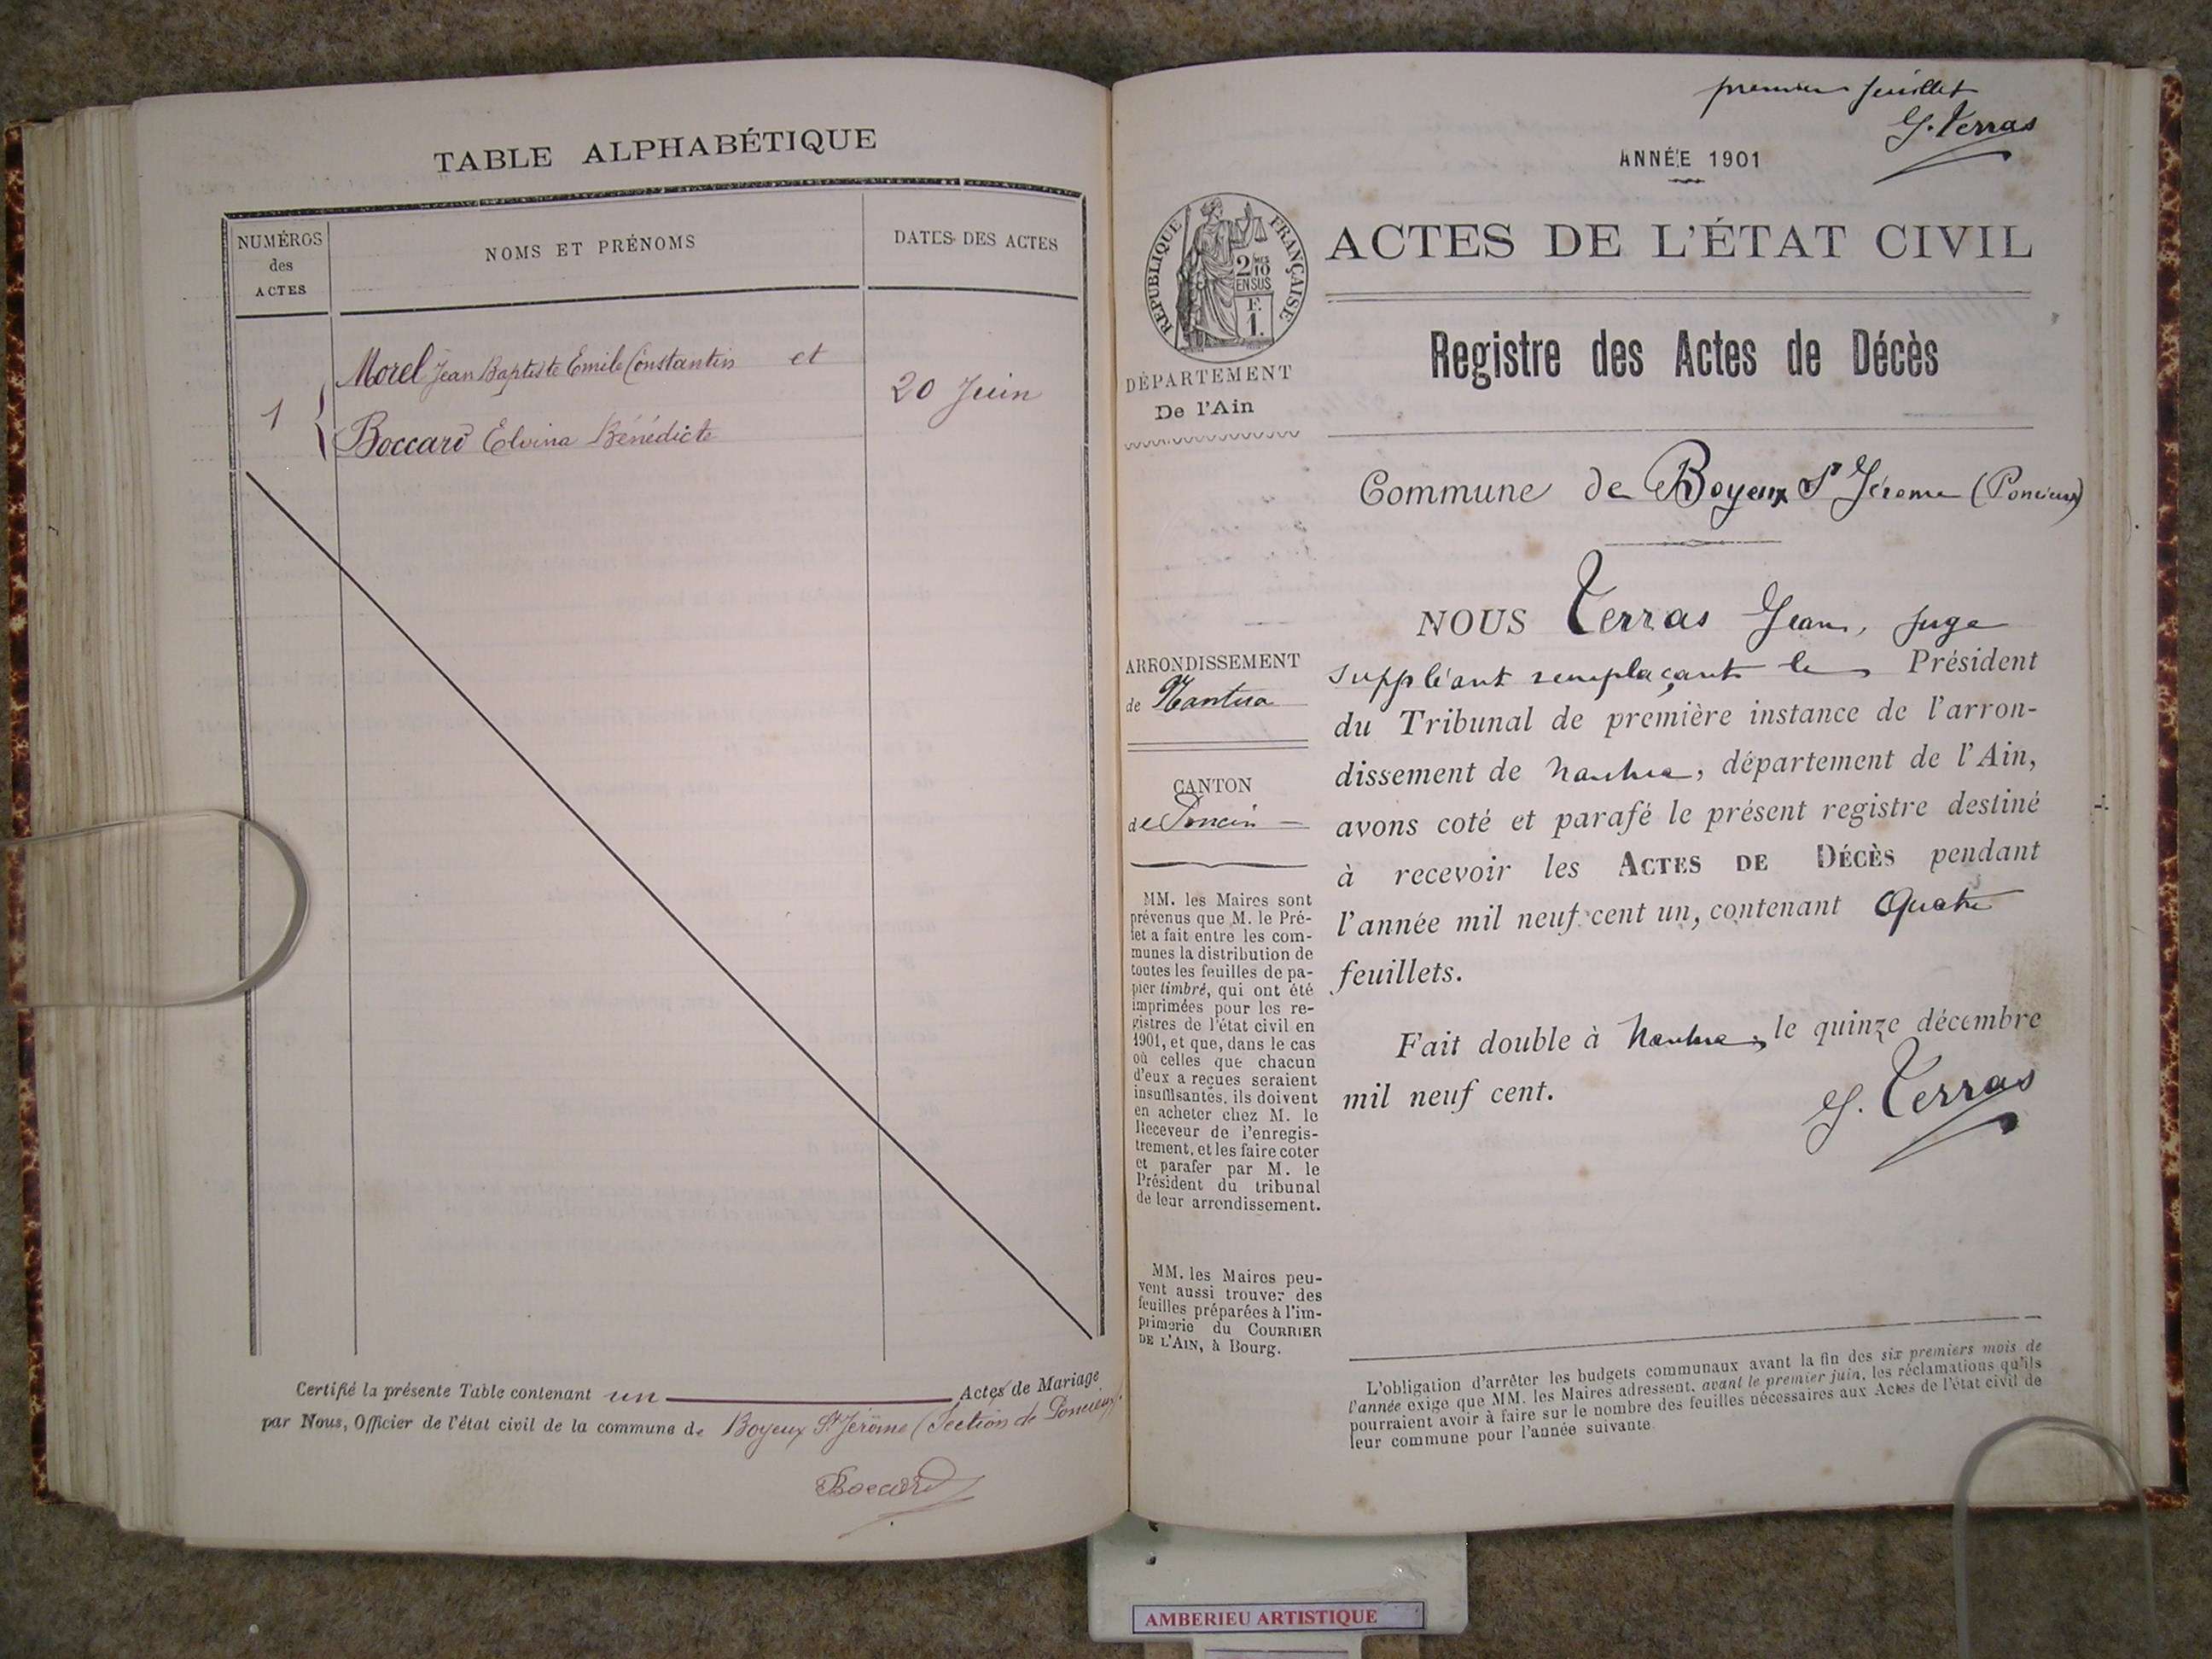 TABLE ALPHABÉTIQUE
NUMÉROS
des
ACTES
NOMS ET PRÉNOMS
DATES DES ACTES
Morel Jean Baptiste Emile Constantin et
1
20 Juin
Boccard Elvina Bénédicte
Certifié la présente Table contenant un Actes de Mariage
par Nous, Officier de l'état civil de la commune de Boyeux St Jérôme (Section de Poncieux)
Boccard
premier feuillet
J. Terras
ANNÉE 1901
RÉPUBLIQUE FRANÇAISE
2 MES
10
EN SUS
F.
1.
ACTES DE L'ÉTAT CIVIL
Registre des Actes de Décès
DÉPARTEMENT
De l'Ain
Commune de Boyeux St Jérome (Poncieux)
ARRONDISSEMENT
de Nantua
CANTON
de Poncin
MM. les Maires sont
prévenus que M. le Pré-
fet a fait entre les com-
munes la distribution de
toutes les feuilles de pa-
pier timbré, qui ont été
imprimées pour les re-
gistres de l'état civil en
1901, et que, dans le cas
où celles que chacun
d'eux a reçues seraient
insuffisantes, ils doivent
en acheter chez M. le
Receveur de l'enregis-
trement, et les faire coter
et parafer par M. le
Président du tribunal
de leur arrondissement.
MM. les Maires peu-
vent aussi trouver des
feuilles préparées à l'im-
primerie du COURRIER
DE L'AIN, à Bourg.
NOUS Terras Jean, juge
suppléant remplaçant le Président
du Tribunal de première instance de l'arron-
dissement de Nantua, département de l'Ain,
avons coté et parafé le présent registre destiné
à recevoir les ACTES DE DÉCÈS pendant
l'année mil neuf cent un, contenant Quatre
feuillets.
Fait double à Nantua, le quinze décembre
mil neuf cent.
J. Terras
L'obligation d'arrêter les budgets communaux avant la fin des six premiers mois de
l'année exige que MM. les Maires adressent, avant le premier juin, les réclamations qu'ils
pourraient avoir à faire sur le nombre des feuilles nécessaires aux Actes de l'état civil de
leur commune pour l'année suivante.
AMBERIEU ARTISTIQUE